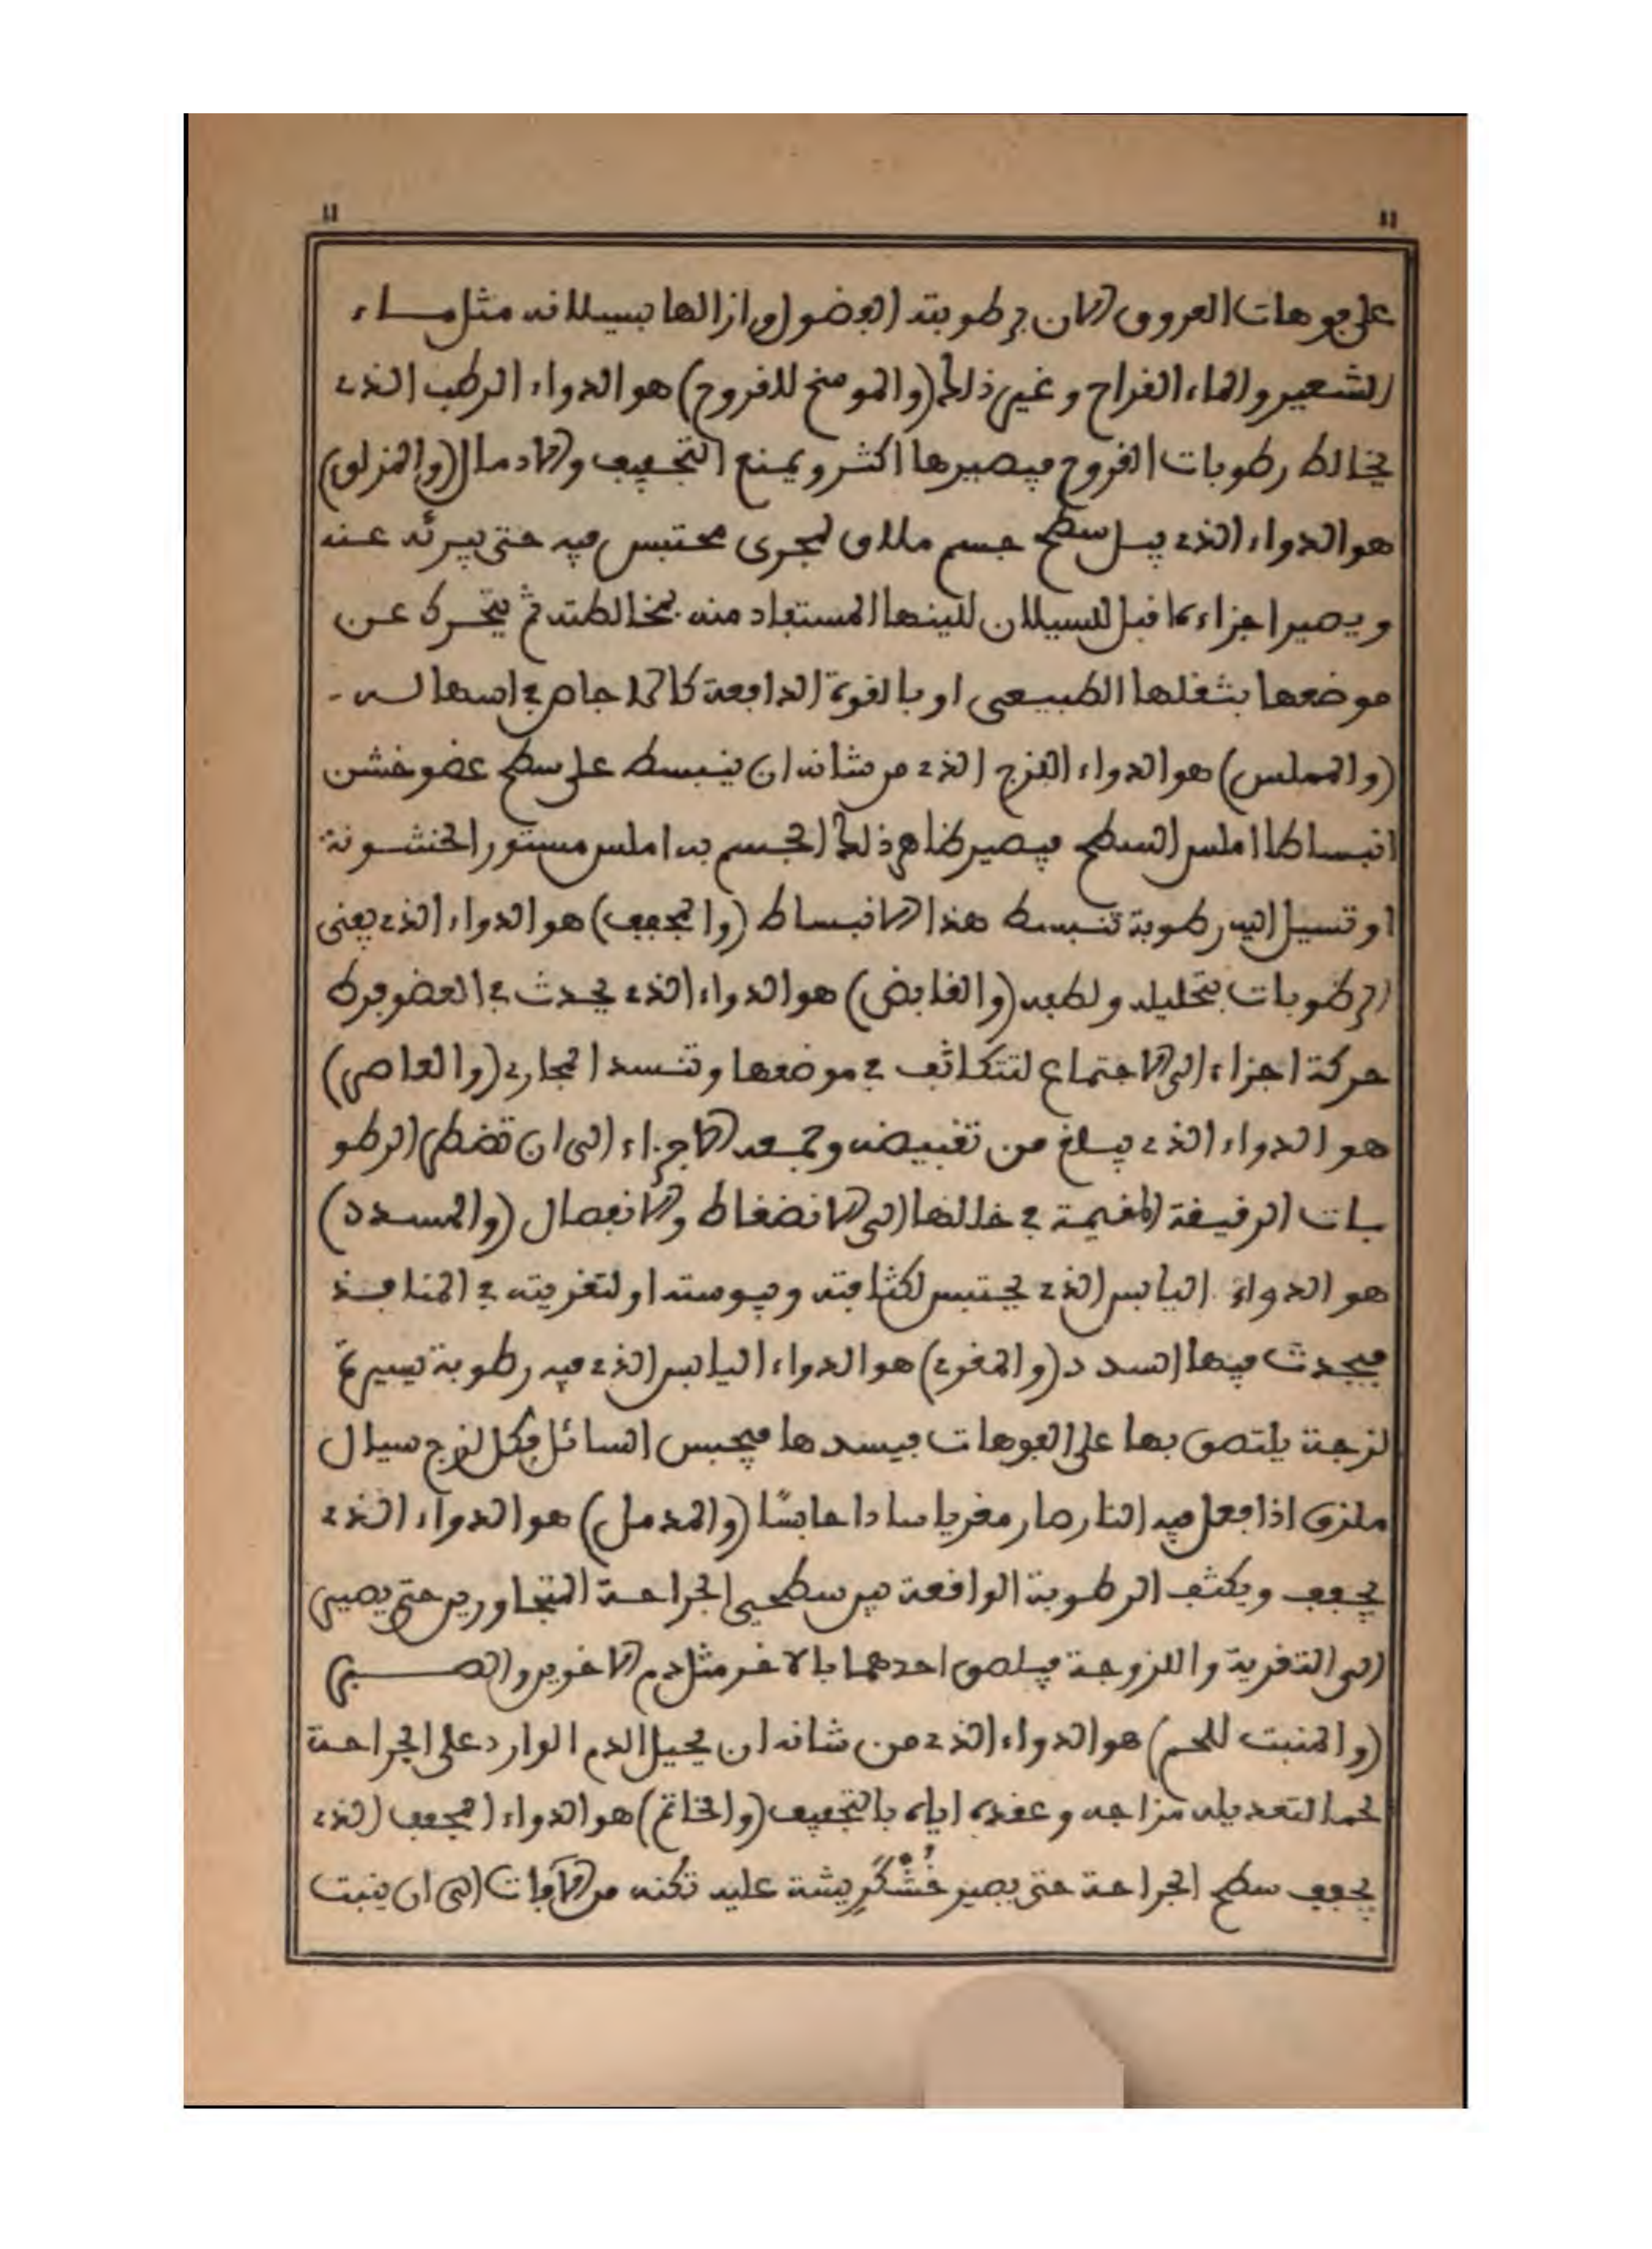 11 11
على فوهات العروق الان برطوبته الفضول وازالها بسيلانه مثل مـاء
الشعير والماء القراح وغير ذلك (والموسخ للقروح) هو الدواء الرطب الذي
يخالط رطوبات القروح فيصيرها اكثر ويمنع التجفيف والادمال (والمزلق)
هو الدواء الذي يبل سطح جسم ملاق لمجرى محتبس فيه حتى يبرئه عنه
ويصير اجزاءه اقبل للسيلان للينها المستفاد منه بمخالطته ثم يتحرك عن
موضعها بثقلها الطبيعى او بالقوة الدافعة كالاجاص في اسهاله -
(والمملس) هو الدواء اللزج الذي من شانه ان ينبسط على سطح عضو خشن
انبساطا املس السطح فيصير ظاهر ذلك الجسم به املس مستور الخشونة
او تسيل اليه رطوبة تنبسط هذا الانبساط (والمجفف) هو الدواء الذي يفنى
الرطوبات بتحليله ولطفه (والقابض) هو الدواء الذي يحدث في العضو فرط
حركة اجزاء الى الاجتماع لتتكاثف في موضعها وتنسد المجاري (والعاصر)
هو الدواء الذي يبلغ من تقبيضه وجمعه الاجزاء الى ان تضطر الرطو
بات الرقيقة المقيمة في خللها الى الانضغاط والانفصال (والمسدد)
هو الدواء اليابس الذي يحتبس لكثافته ويبوسته او لتغريته في المنافـذ
فيحدث فيها السدد (والمغري) هو الدواء اليابس الذي فيه رطوبة يسيرة
لزجة يلتصق بها على الفوهات فيسدها فيحبس السائل فكل لزج سيال
ملزق اذا فعل فيه النار صار مغريا سادا حابسًا (والمدمل) هو الدواء الذي
يجفف ويكثف الرطوبة الواقعة بين سطحي الجراحة المتجاورين حتى يصير
الى التغرية واللزوجة فيلصق احدهما بالاخر مثل دم الاخوين والصـبر
(والمنبت للحم) هو الدواء الذي من شانه ان يحيل الدم الوارد على الجراحة
لحما لتعديله مزاجه وعقده اياه بالتجفيف (والخاتم) هو الدواء المجفف الذي
يجفف سطح الجراحة حتى يصير خُشْكَرِيشة عليه تكنه من الآفات الى ان ينبت